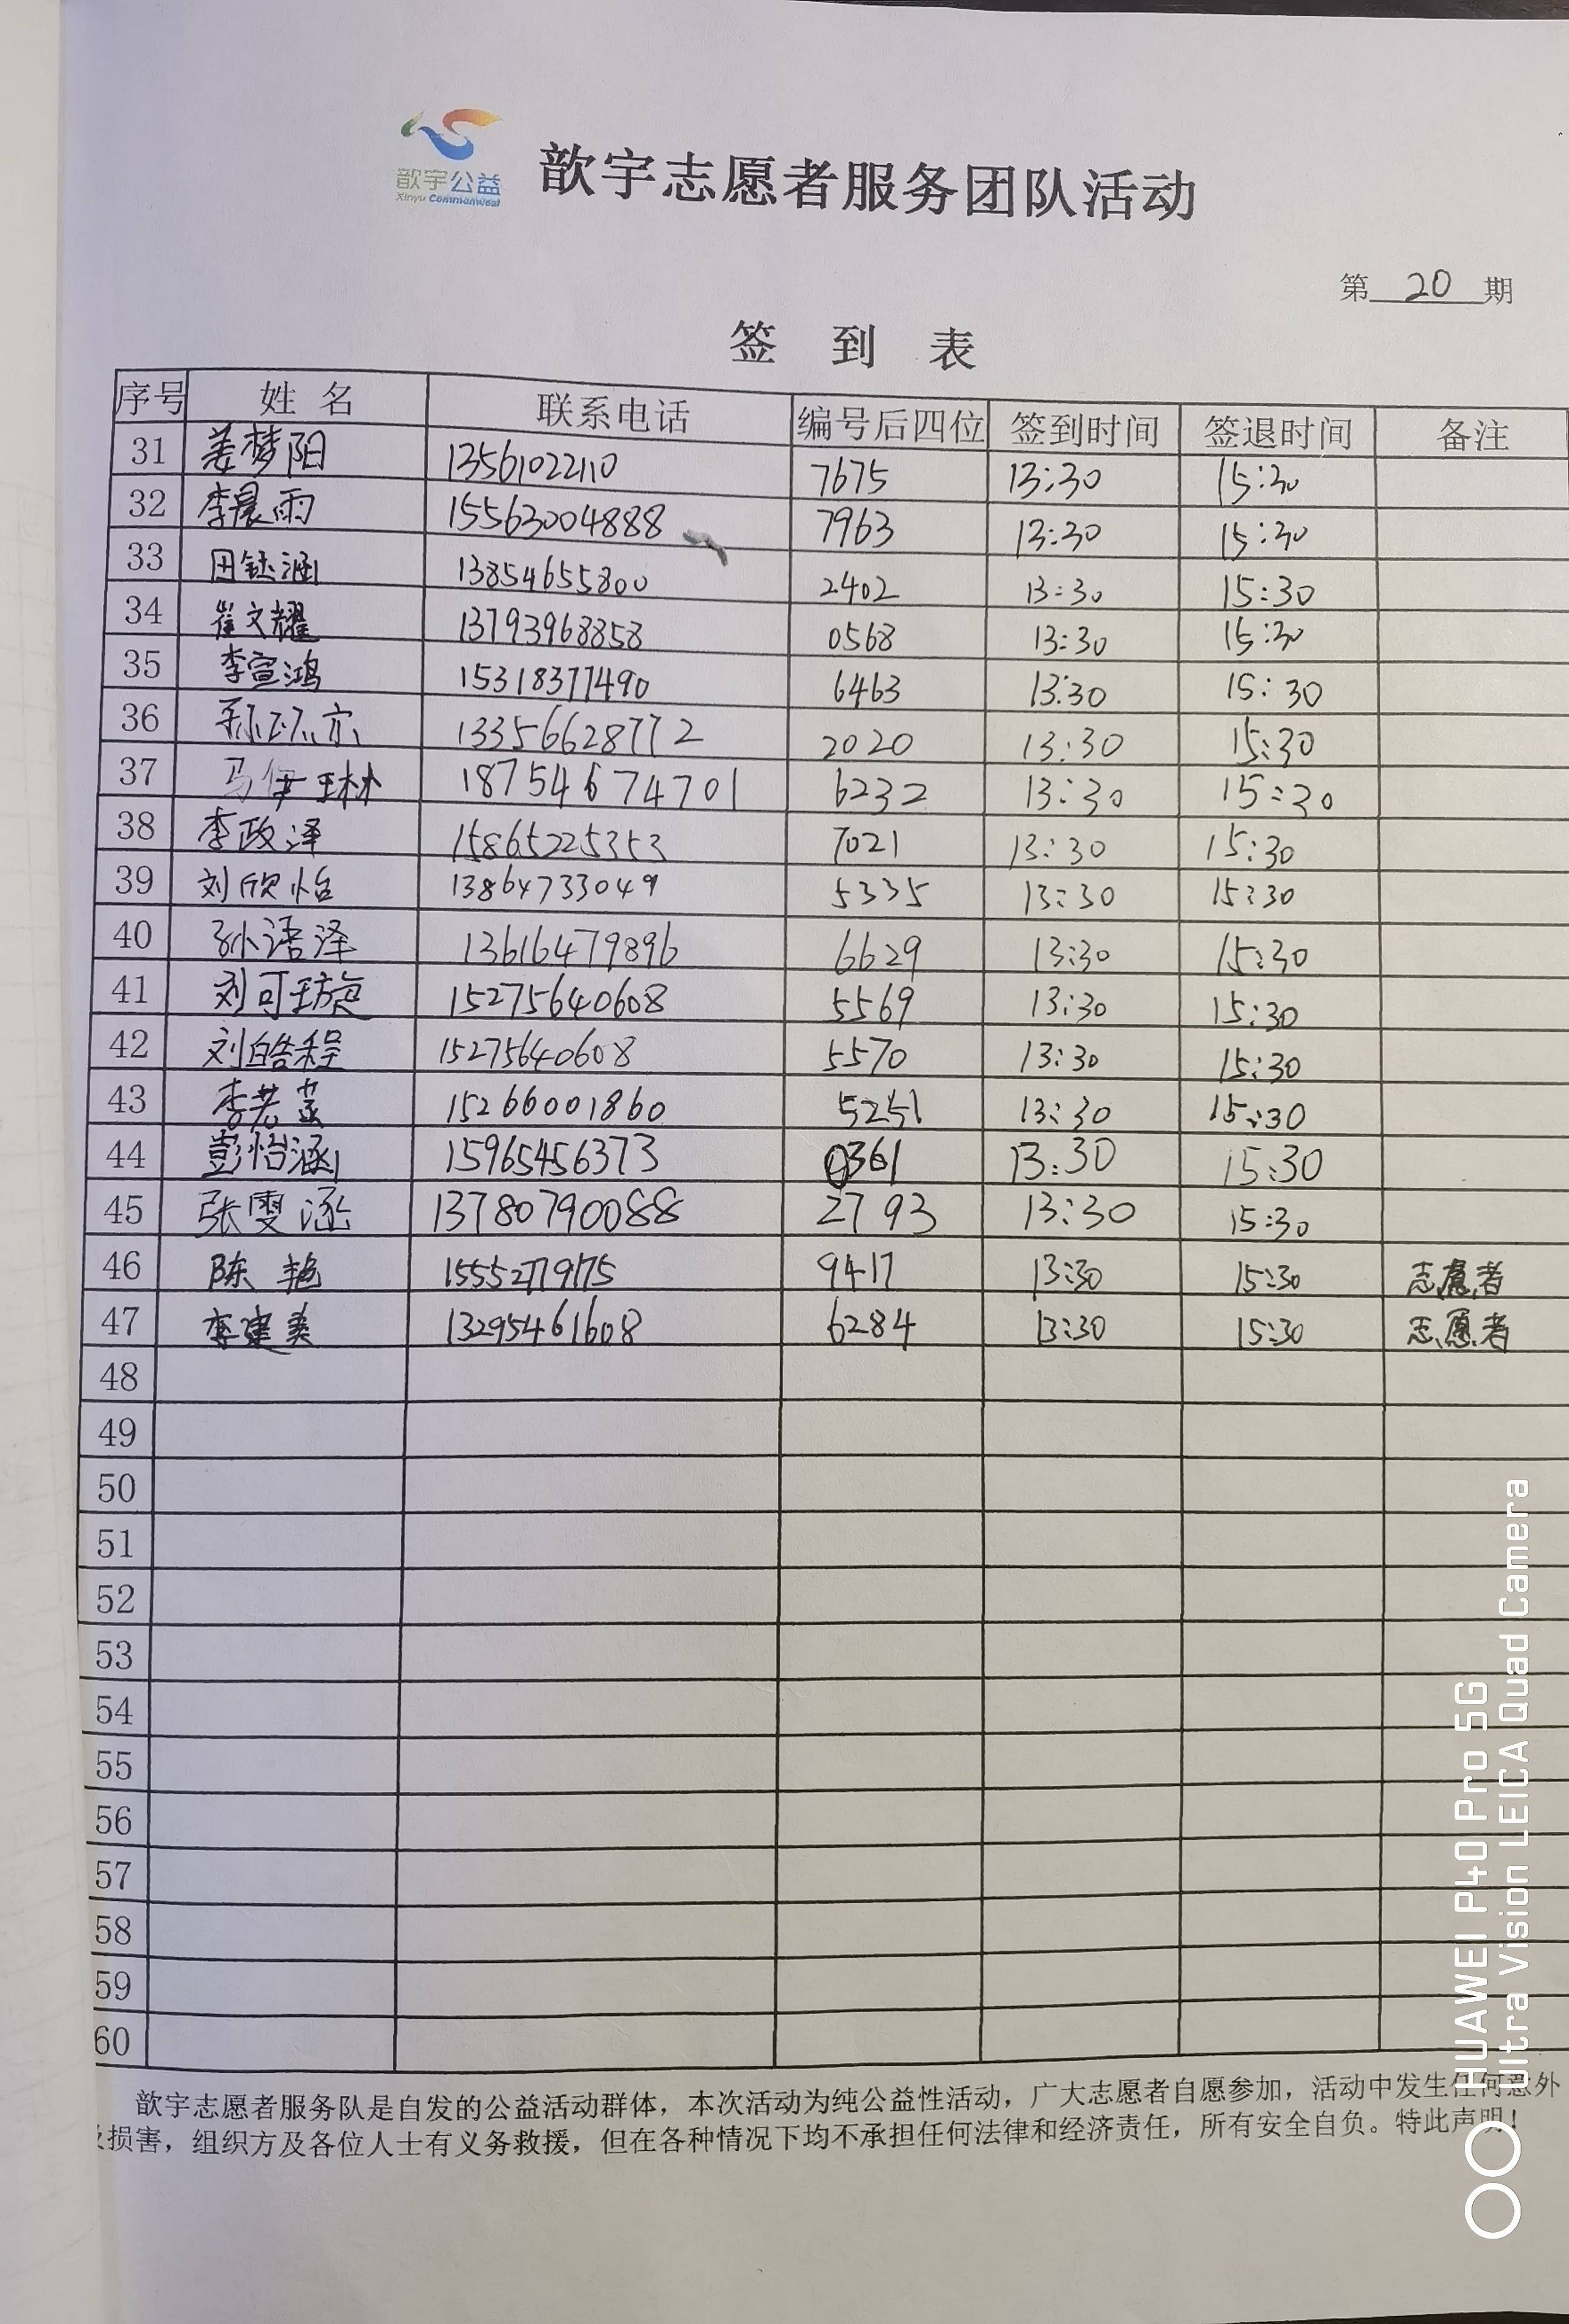 歆宇公益
Xinyu Commonweal
歆宇志愿者服务团队活动
第 20 期
签 到 表
序号 姓 名 联系电话 编号后四位 签到时间 签退时间 备注
31 姜梦阳 13561022110 7675 13:30 15:30
32 李晨雨 15563004888 7963 13:30 15:30
33 田钰涵 13854655800 2402 13:30 15:30
34 崔文耀 13793968858 0568 13:30 15:30
35 李宣鸿 15318377490 6463 13:30 15:30
36 13356628772 2020 13:30 15:30
37 马伊琳 18754674701 6232 13:30 15:30
38 李政泽 15865225353 7021 13:30 15:30
39 刘欣怡 13864733049 5335 13:30 15:30
40 孙语泽 13616479896 6629 13:30 15:30
41 刘可璇 15275640608 5569 13:30 15:30
42 刘皓程 15275640608 5570 13:30 15:30
43 15266001860 5251 13:30 15:30
44 彭怡涵 15965456373 0361 13:30 15:30
45 张雯涵 13780790088 2793 13:30 15:30
46 陈艳 15552779175 9417 13:30 15:30 志愿者
47 李建美 13295461608 6284 13:30 15:30 志愿者
48
49
50
51
52
53
54
55
56
57
58
59
60
歆宇志愿者服务队是自发的公益活动群体，本次活动为纯公益性活动，广大志愿者自愿参加，活动中发生任何意外
及损害，组织方及各位人士有义务救援，但在各种情况下均不承担任何法律和经济责任，所有安全自负。特此声明！
HUAWEI P40 Pro 5G
Ultra Vision LEICA Quad Camera